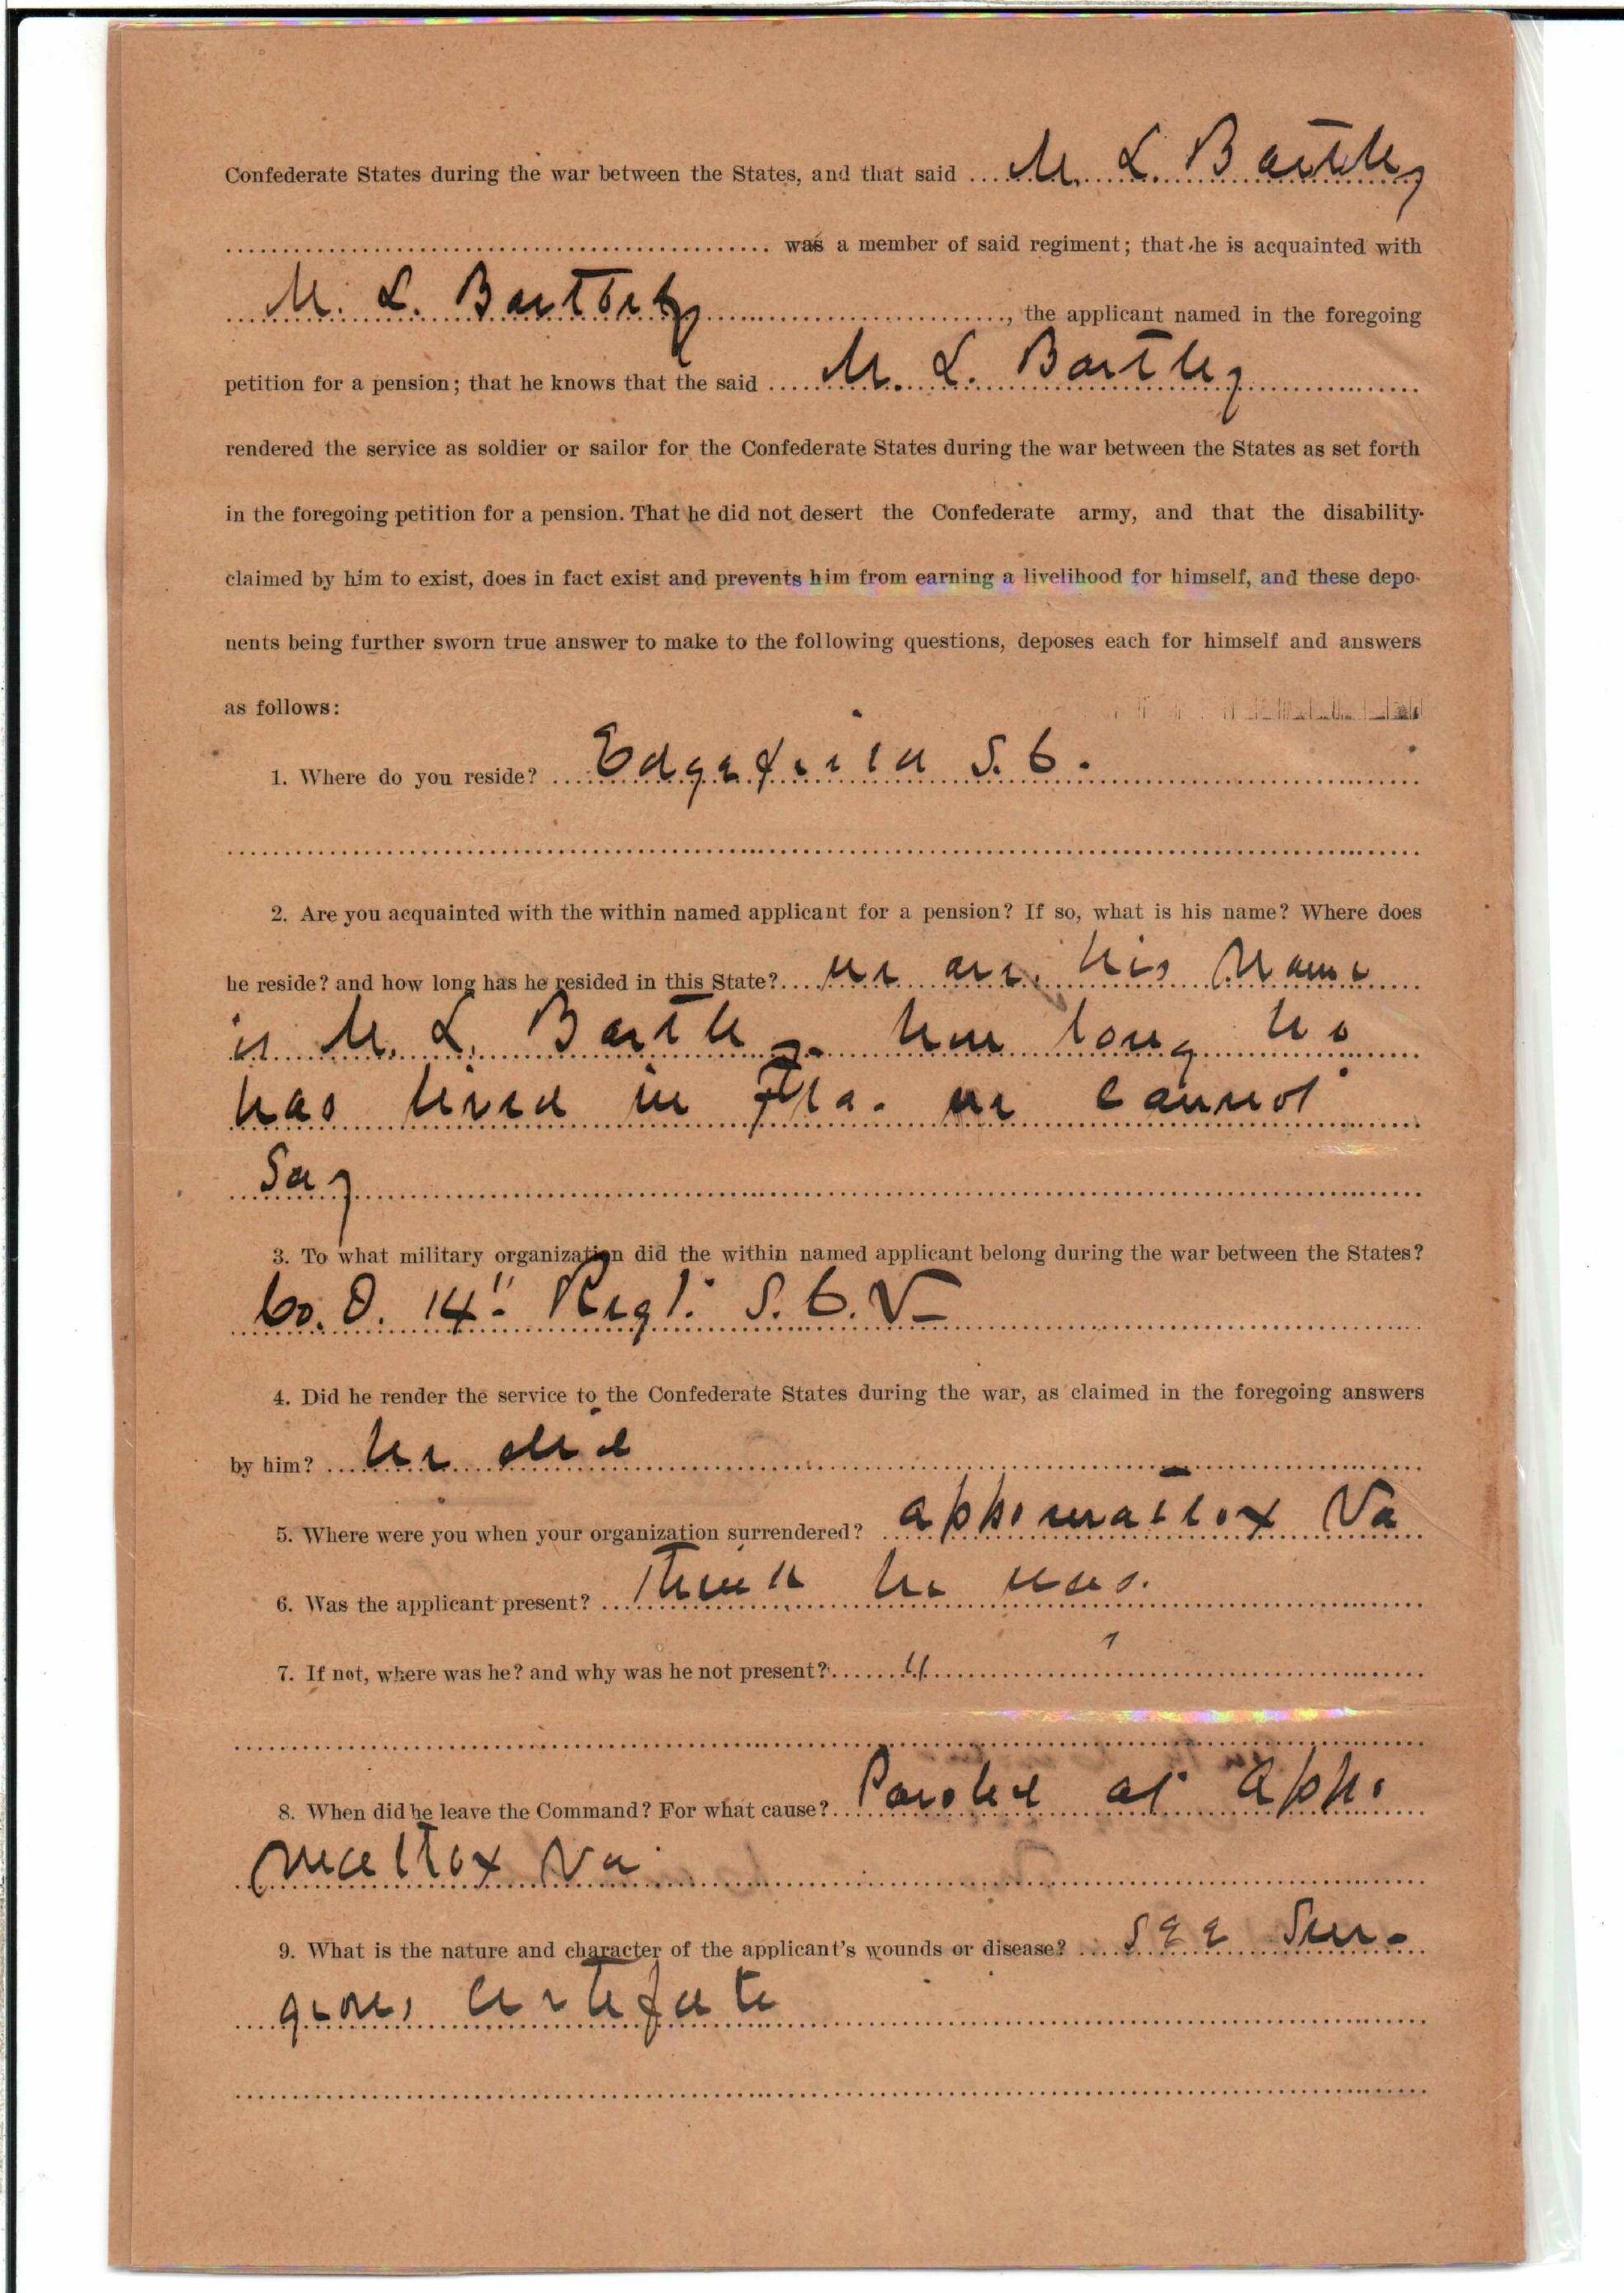 Confederate States during the war between the States, and that said M. L. Bartley
was a member of said regiment; that he is acquainted with
M. L. Bartley, the applicant named in the foregoing
petition for a pension; that he knows that the said M. L. Bartley
rendered the service as soldier or sailor for the Confederate States during the war between the States as set forth
in the foregoing petition for a pension. That he did not desert the Confederate army, and that the disability
claimed by him to exist, does in fact exist and prevents him from earning a livelihood for himself, and these depo-
nents being further sworn true answer to make to the following questions, deposes each for himself and answers
as follows:
1. Where do you reside? Edgefield S. C.
2. Are you acquainted with the within named applicant for a pension? If so, what is his name? Where does
he reside? and how long has he resided in this State? we are. his name
is M. L. Bartley. how long he
has lived in Fla. we cannot
say
3. To what military organization did the within named applicant belong during the war between the States?
Co. D. 14" Regt. S. C. V
4. Did he render the service to the Confederate States during the war, as claimed in the foregoing answers
by him? he did
5. Where were you when your organization surrendered? appomattox Va
6. Was the applicant present? Think he was.
7. If not, where was he? and why was he not present? "
8. When did he leave the Command? For what cause? Paroled at appo
mattox Va
9. What is the nature and character of the applicant's wounds or disease? See Sur-
geons